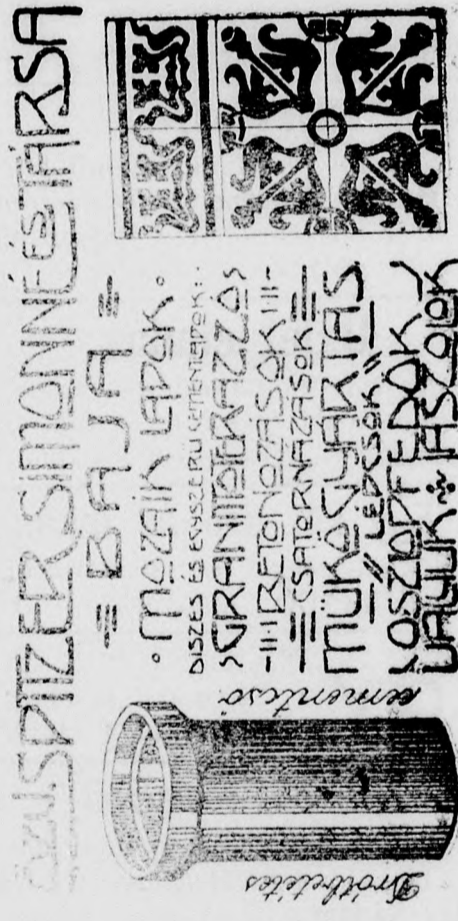 ÖZV. SPITZER SIMONNÉ ÉS TÁRSA
BAJA
MOZAIK LAPOK
DISZES ÉS EGYSZERÜ CEMENTLAPOK
GRANITOTERAZZO
BETONOZÁSOK
CSATORNÁZÁSOK
MÜKÖGYÁRTÁS
LÉPCSÖK
OSZLOPFEDÖK
VÁLYUK JÁSZOLOK
Drótbetétes
cementcső